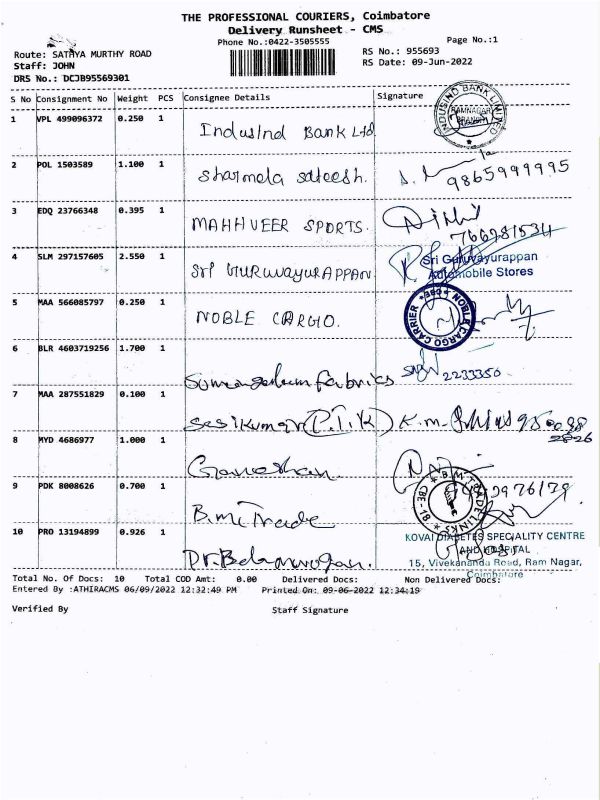 THE PROFESSIONAL COURIERS, Coimbatore
Delivery Runsheet - CMS
Phone No.:0422-3505555
Page No.:1
Route: SATHYA MURTHY ROAD
RS No.: 955693
Staff: JOHN
RS Date: 09-Jun-2022
DRS No.: DCJB95569301
S No Consignment No Weight PCS Consignee Details Signature
1 VPL 499096372 0.250 1 IndusInd Bank Ltd
INDUSIND BANK LIMITED
RAMNAGAR
BRANCH
2 POL 1503589 1.100 1 Sharmela Sateesh.
9865999995
3 EDQ 23766348 0.395 1 MAHHVEER SPORTS.
4 SLM 297157605 2.550 1 Sri GURUVAYURAPPAN
Sri Guruvayurappan
Automobile Stores
5 MAA 566085797 0.250 1 NOBLE CARGO.
NOBLE CARGO CARRIER * CBE *
6 BLR 4603719256 1.700 1 Sumangalum fabrics
2233350
7 MAA 287551829 0.100 1 Sasikumar (P.T.K) K.m.
8 MYD 4686977 1.000 1 Ganeshan
9 PDK 8008626 0.700 1 B.M Trade
B.M. TRADE LINKS * CBE - 18 *
10 PRO 13194899 0.926 1 Dr. Balamurogan.
KOVAI DIABETES SPECIALITY CENTRE
AND HOSPITAL
15, Vivekananda Road, Ram Nagar,
Coimbatore
Total No. Of Docs: 10 Total COD Amt: 0.00 Delivered Docs: Non Delivered Docs:
Entered By :ATHIRACMS 06/09/2022 12:32:49 PM Printed On: 09-06-2022 12:34:19
Verified By Staff Signature